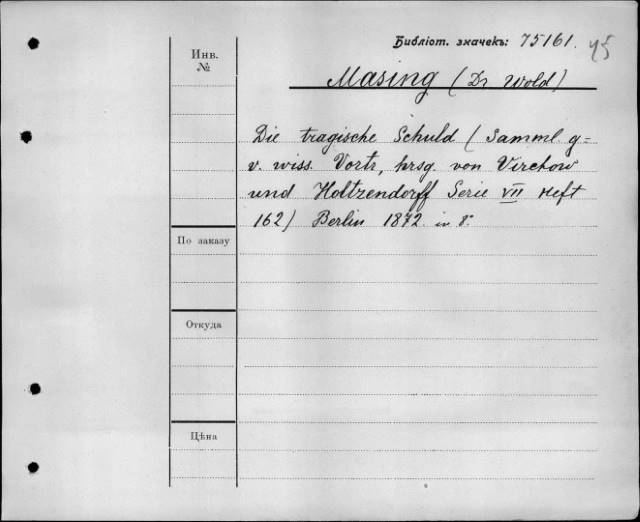 Библіот. значекъ: 75161.
Инв.
№
Masing (Dr Wold)
Die tragische Schuld (Samml g-
v. wiss. Vortr, hrsg. von Virchow
und Holtzendorff Serie VII Heft
162) Berlin 1872 in 8°
По заказу
Откуда
Цѣна